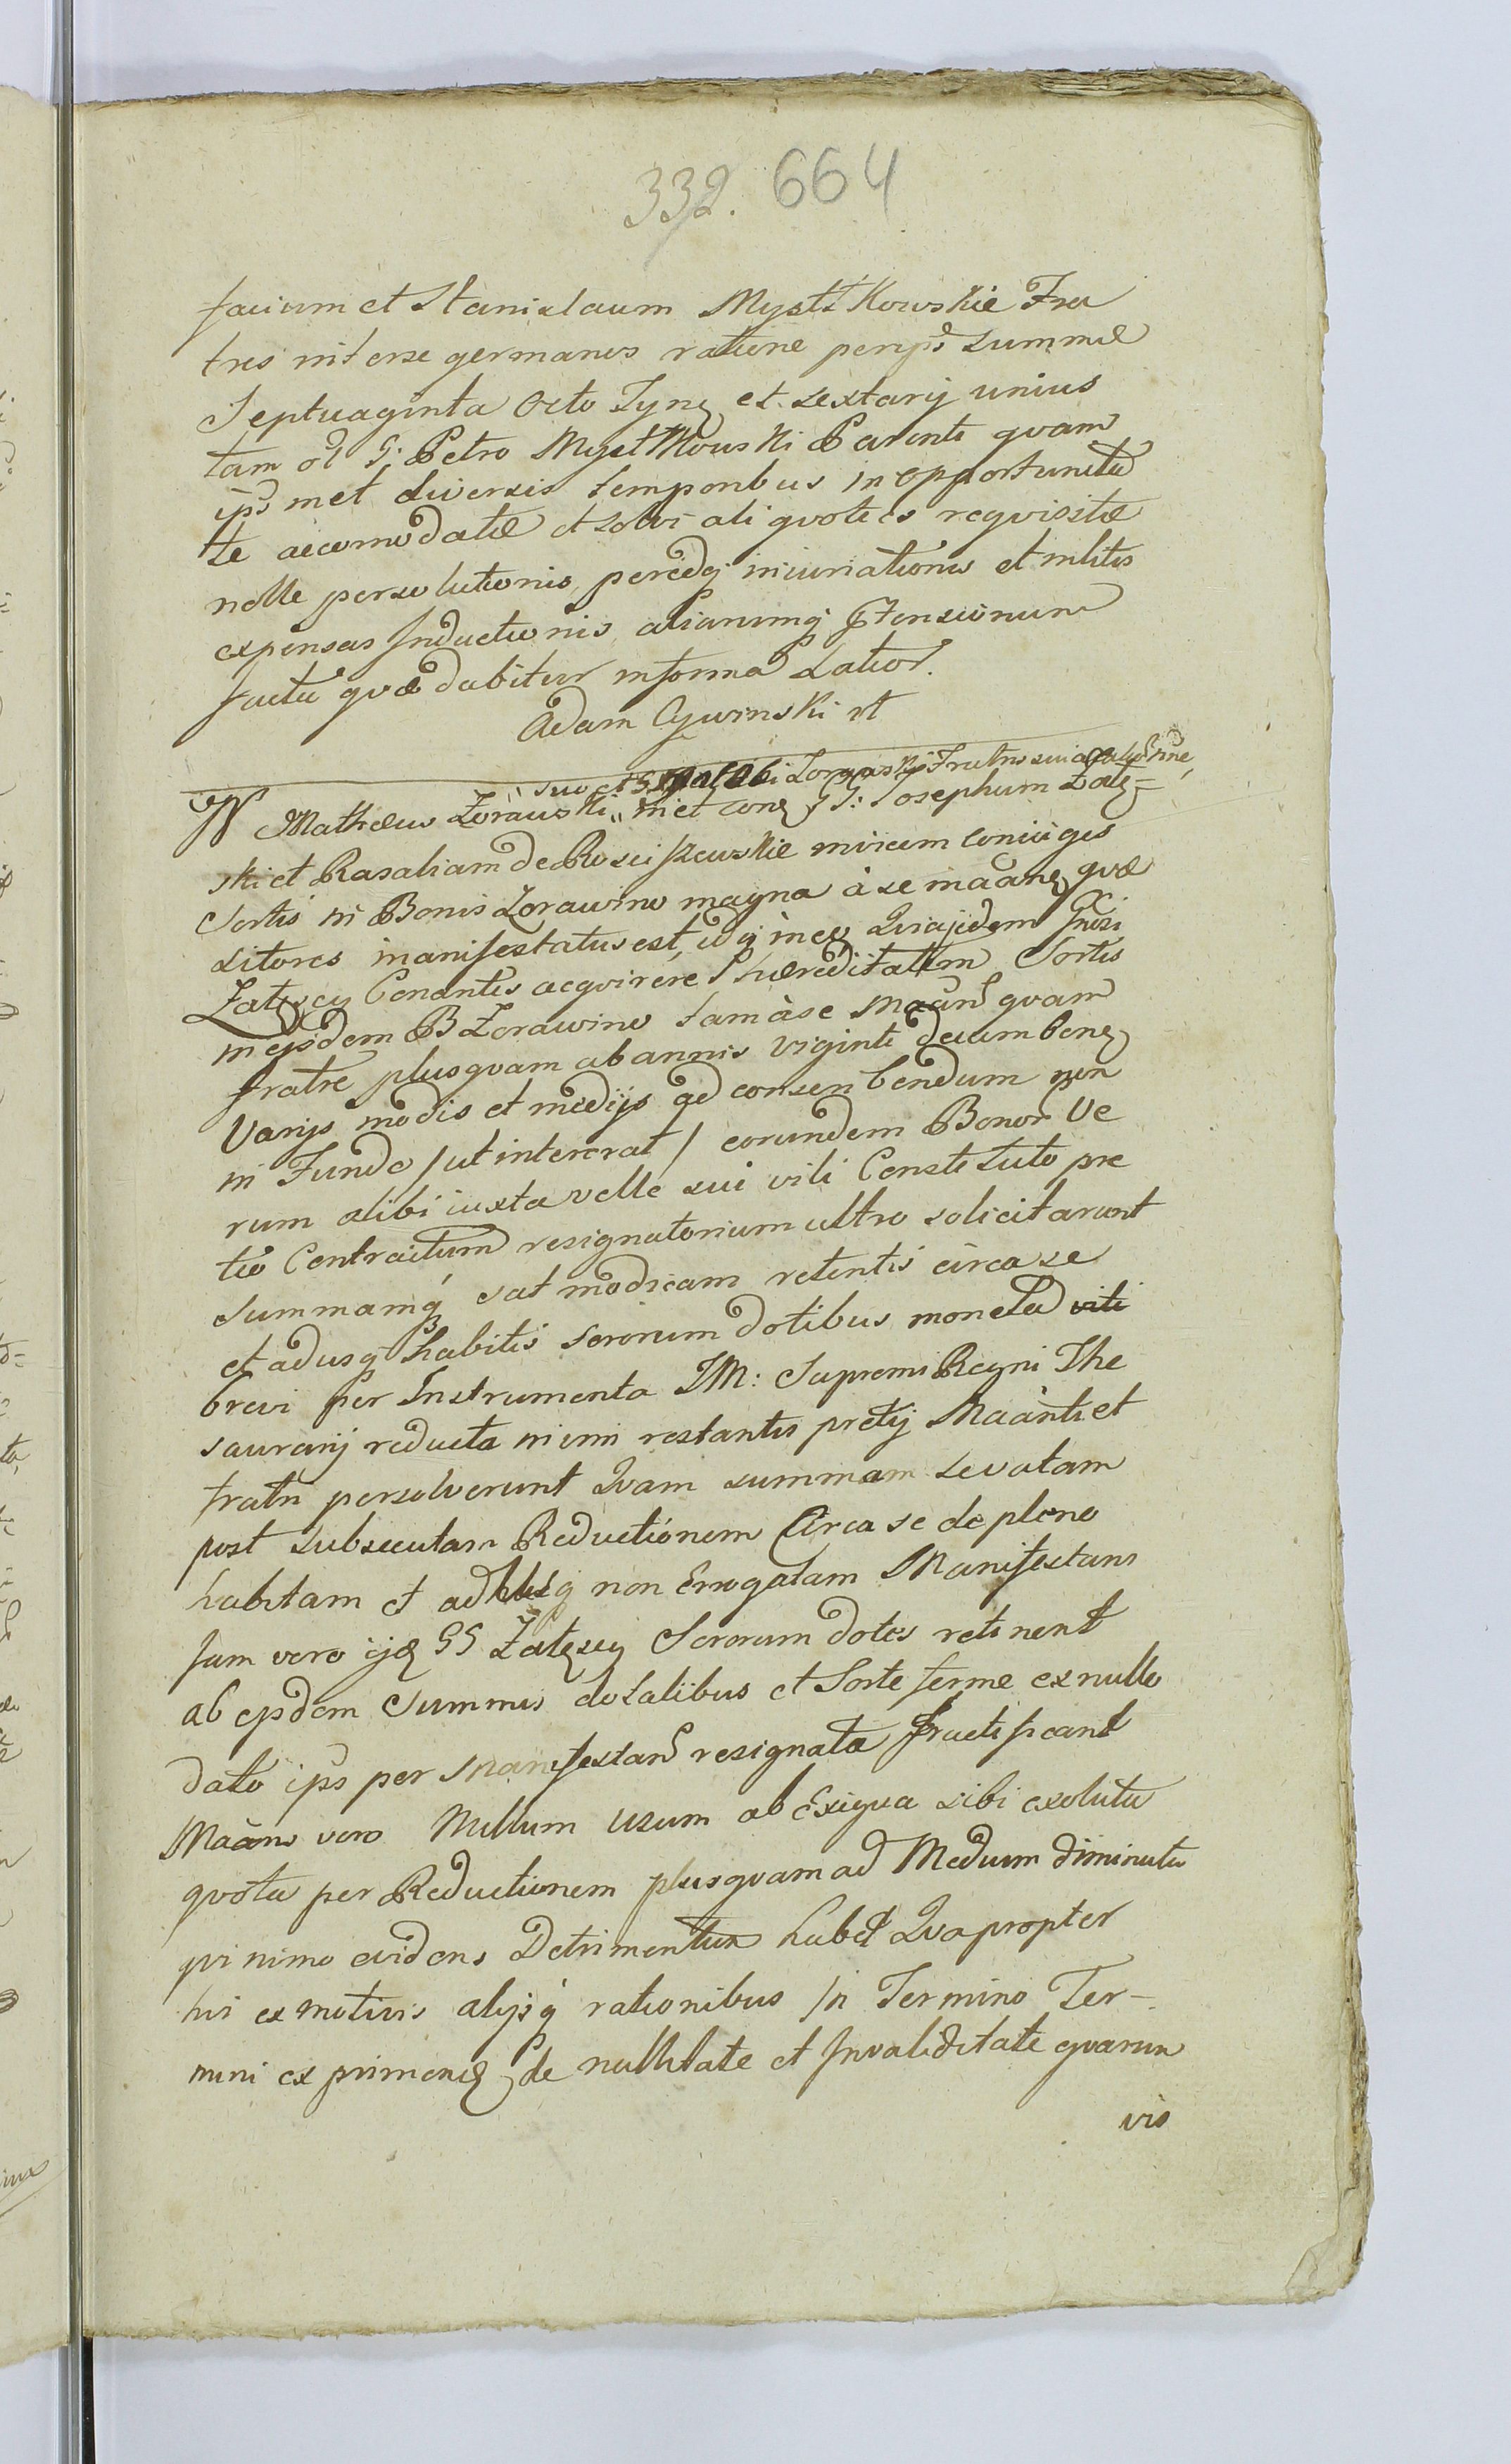 332. 664
facium et Stanislaum Mystkowskie Fra
tres inter se germanos ratione per ips summæ
Septuaginta Octo Tynf et sextarij unius
tam ol G: Petro Mystkowski Parenti quam
ips met diversis temporibus in opportunita
te accomodatæ et solvi ali quoties requisitæ
nelle persolutionis, per eosq iniuriationis et in litis
expensas Inductionis aliarumq Ptensionum
facta quæ dabitur in forma Latior.
Adam Cywinski vt
suo et G Jacobi Zorawski Fratris sui
W Matheus Zorawski nīe et con GG: Josephum Załę=
ski et Rasaliam de Rosciszewskie invicem coniuges
Sortis in Bonis Zorawino magna à se māanē quæ
sitores manifestatus est, id q in eo, Quia jidem
Załęscy Conantes acqvirere hæreditatem Sortis
in ejsdem B Zorawino tam à se Maān quam
fratre plusquam ab annis viginti decumben
Varijs modis et medijs ad conscribendum non
in Fundo / ut intererat / eorundem Bonor Ve
rum alibi iuxta velle sui vili Constituto pre
tio Contractum resignatorium ultro solicitarunt
Summamq sat modicam retentis circa se
et adusq habitis Sororum dotibus moneta viti
brevi per Instrumenta IM: Supremi Regni The
saurarij reducta in vim restantis pretij Maānti et
fratri persolverunt Quam summam levatam
post subsecutam Reductionem Circa se de pleno
habitam et ad husq non Erogatam Manifestans
Jam vero ijd GG Załęscy Sororum dotes retinent
ab ejsdem Summis dotalibus et Sorte ferme ex nullo
dato ips per Manifestan resignata fructificant
Maāns vero Nullum Usum ab Exigua sibi exoluta
quota per Reductionem plusquam ad Medium diminuta
qvi nimo evidens Detrimentum habet Quapropter
his ex motivis alijsq rationibus In Termino Ter-
mini ex primen de nullitate et Invaliditate quarum
vis